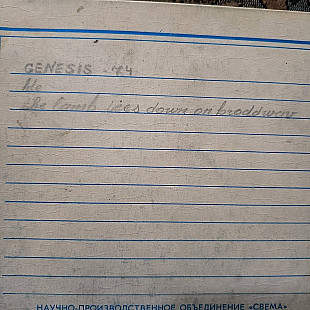 GENESIS - 74
the Lamb lies down on broddway
НАУЧНО-ПРОИЗВОДСТВЕННОЕ ОБЪЕДИНЕНИЕ «СВЕМА»